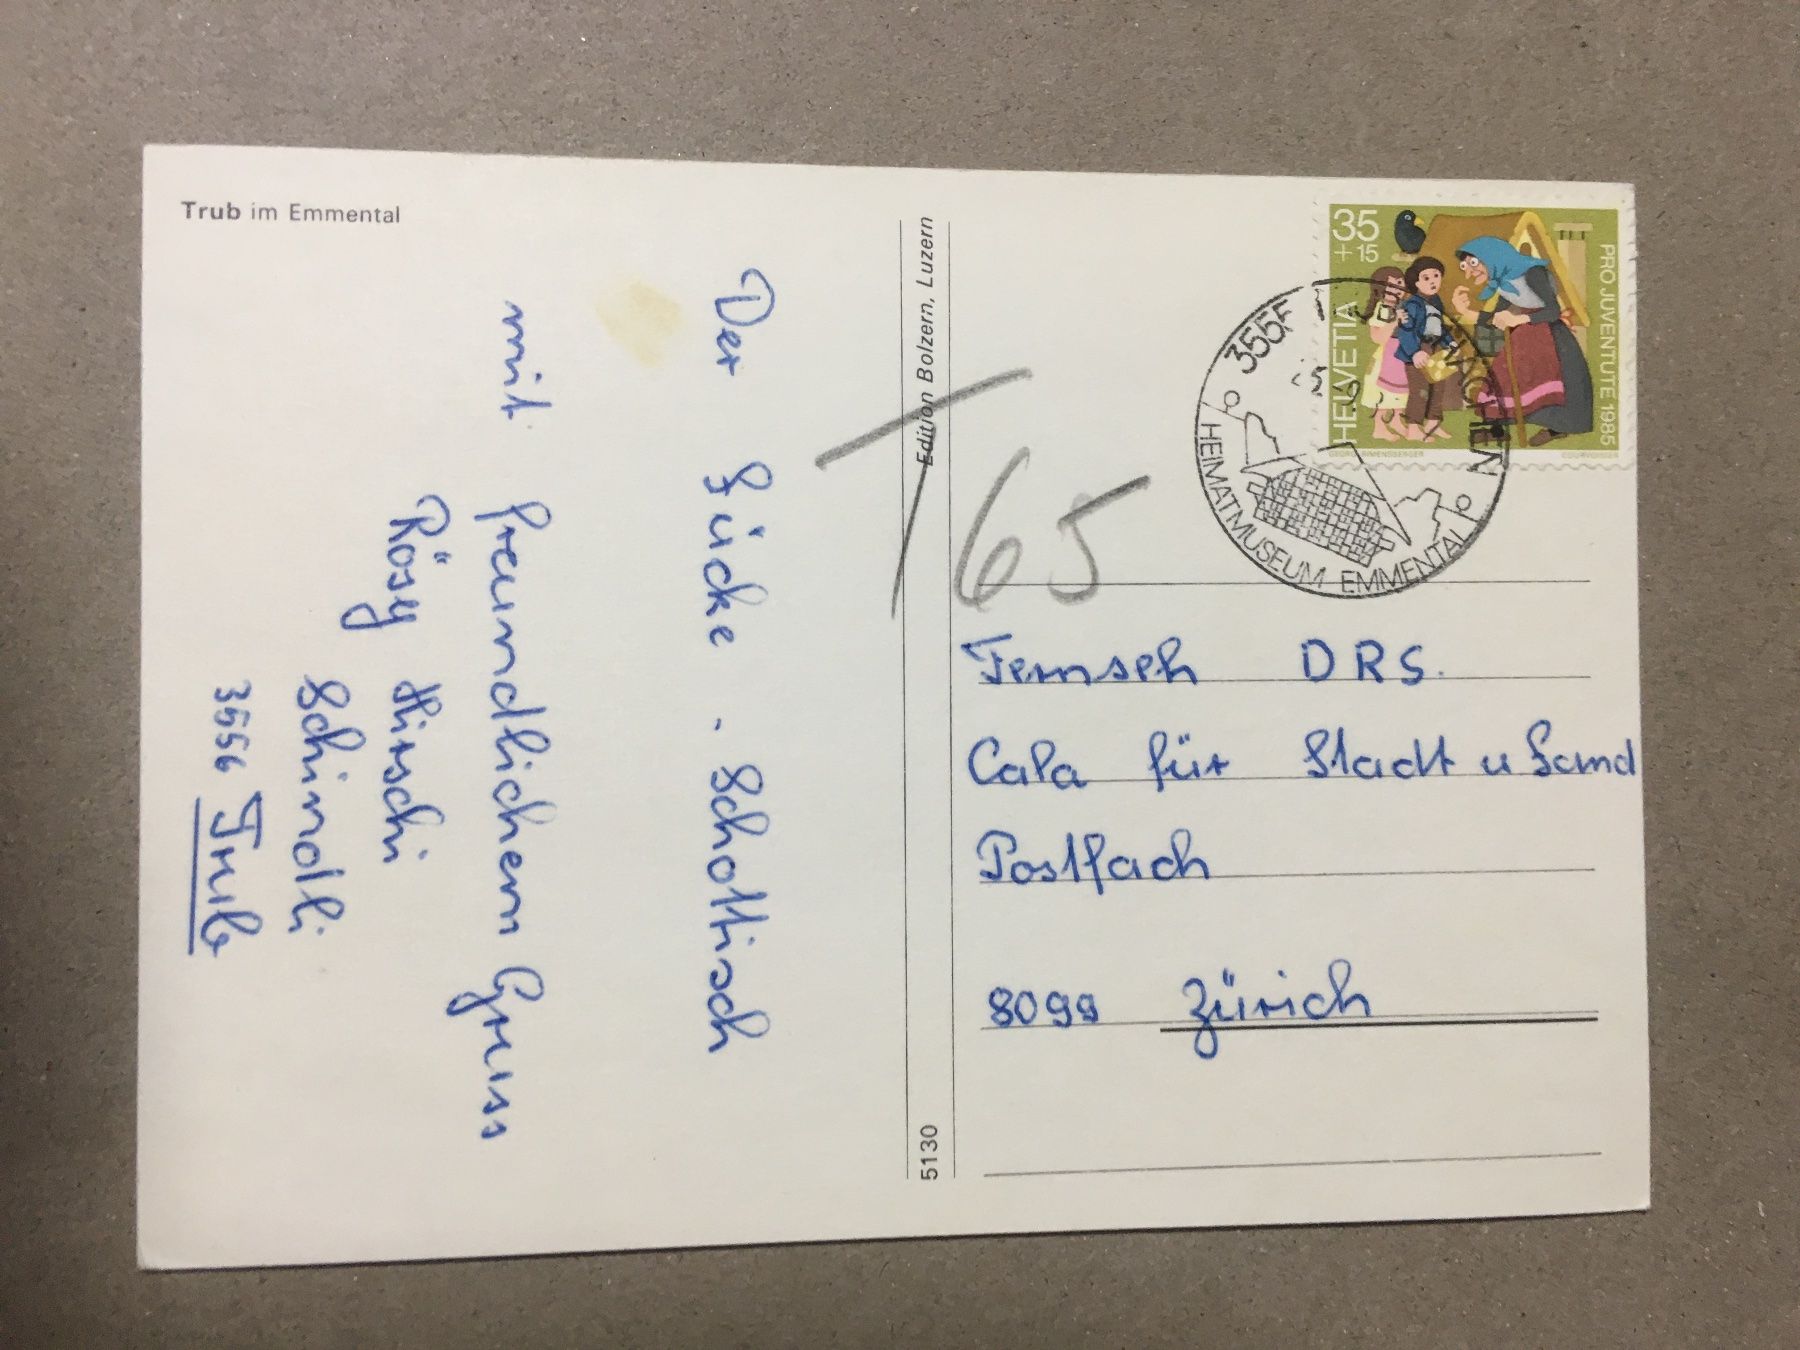 Trub im Emmental
Der Lücke. Schottisch
mit freundlichem Gruss
Rösy Hirschi
Schindli
3556 Trub
Edition Bolzern, Luzern
5130
T 65
35
+15
HELVETIA
PRO JUVENTUTE 1985
COURVOISIER
HEIMATMUSEUM EMMENTAL
Fernseh DRS.
Cala für Stadt u Land
Postfach
8099 Zürich